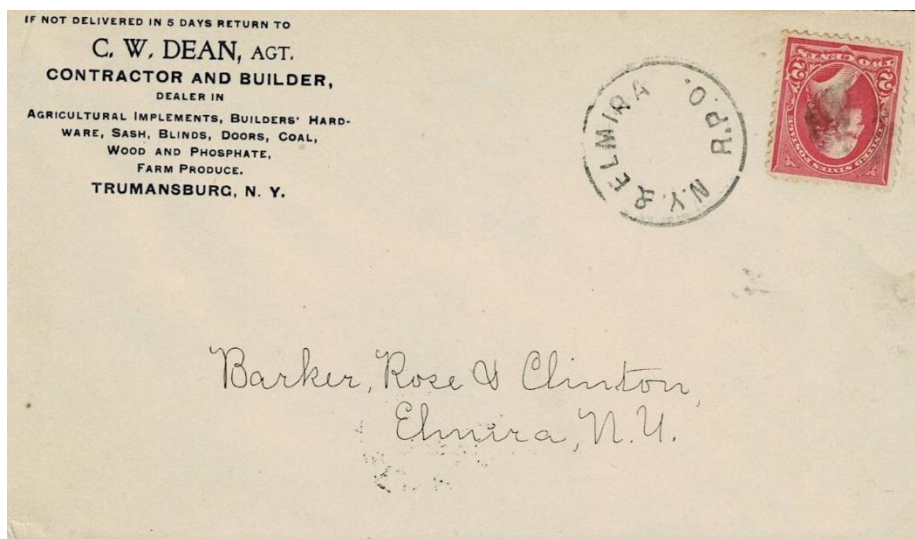 IF NOT DELIVERED IN 5 DAYS RETURN TO
C. W. DEAN, AGT.
CONTRACTOR AND BUILDER,
DEALER IN
AGRICULTURAL IMPLEMENTS, BUILDERS' HARD-
WARE, SASH, BLINDS, DOORS, COAL,
WOOD AND PHOSPHATE,
FARM PRODUCE.
TRUMANSBURG, N. Y.
N.Y. & ELMIRA R.P.O.
UNITED STATES POSTAGE
2 TWO CENTS 2
Barker, Rose & Clinton,
Elmira, N.Y.